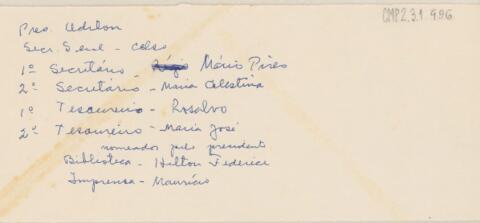 CMP2.3.1 996
Pres. Adilon
Secr. Geral - Celso
1º Secretário - Mário Pires
2º Secretario - Maria Celestina
1º Tesoureiro - Rosalvo
2º Tesoureiro - Maria José
nomeados pelo presidente
Biblioteca - Hilton Federici
Imprensa - Maurício